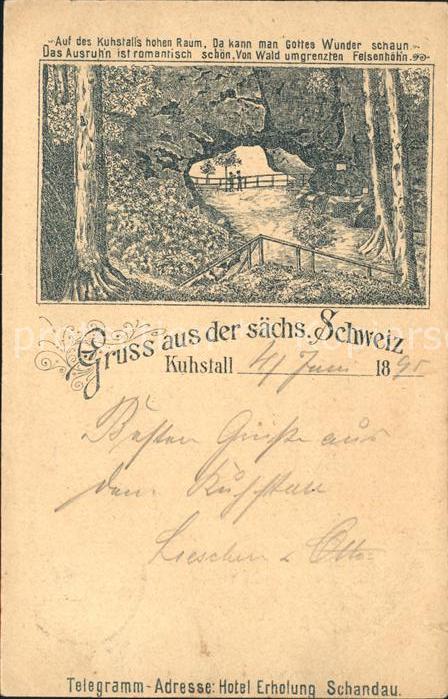 Auf des Kuhstall's hohen Raum, Da kann man Gottes Wunder schaun
Das Ausruh'n ist romantisch schön, Von Wald umgrenzten Felsenhöh'n.
Gruss aus der sächs. Schweiz
Kuhstall 4/ Juni 1895
Besten Grüße aus
dem Kuhstall
Lieschen & Otto
Telegramm-Adresse: Hotel Erholung Schandau.